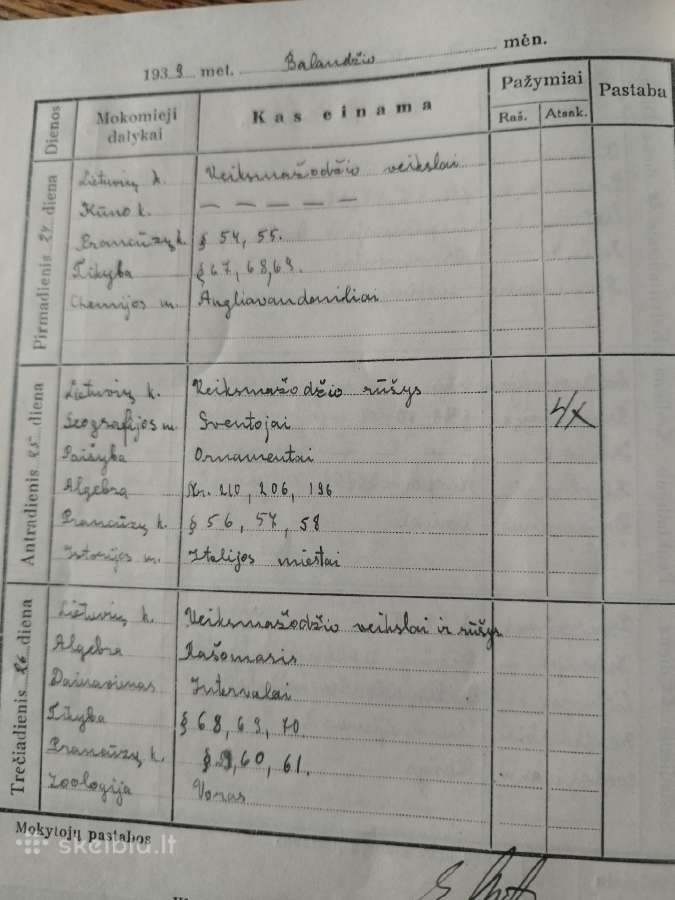 1939 met. Balandžio mėn.
Dienos Mokomieji dalykai Kas einama Pažymiai Raš. Atsak. Pastaba
Pirmadienis 24 diena
Lietuvių k. Veiksmažodžio veikslai
Kūno k. — — — — —
Prancūzų k. § 54, 55.
Tikyba § 67, 68, 69.
Chemijos m. Angliavandeniliai
Antradienis 25 diena
Lietuvių k. Veiksmažodžio rūšys
Geografijos m. Šventojai
Paišyba Ornamentai
Algebra Nr. 210, 206, 196
Prancūzų k. § 56, 57, 58
Istorijos m. Italijos miestai
Trečiadienis 26 diena
Lietuvių k. Veiksmažodžio veikslai ir rūšys
Algebra Rašomasis
Dainavimas Intervalai
Tikyba § 68, 69, 70.
Prancūzų k. § 60, 61.
Zoologija Voras
Mokytojų pastabos
skelbiu.lt